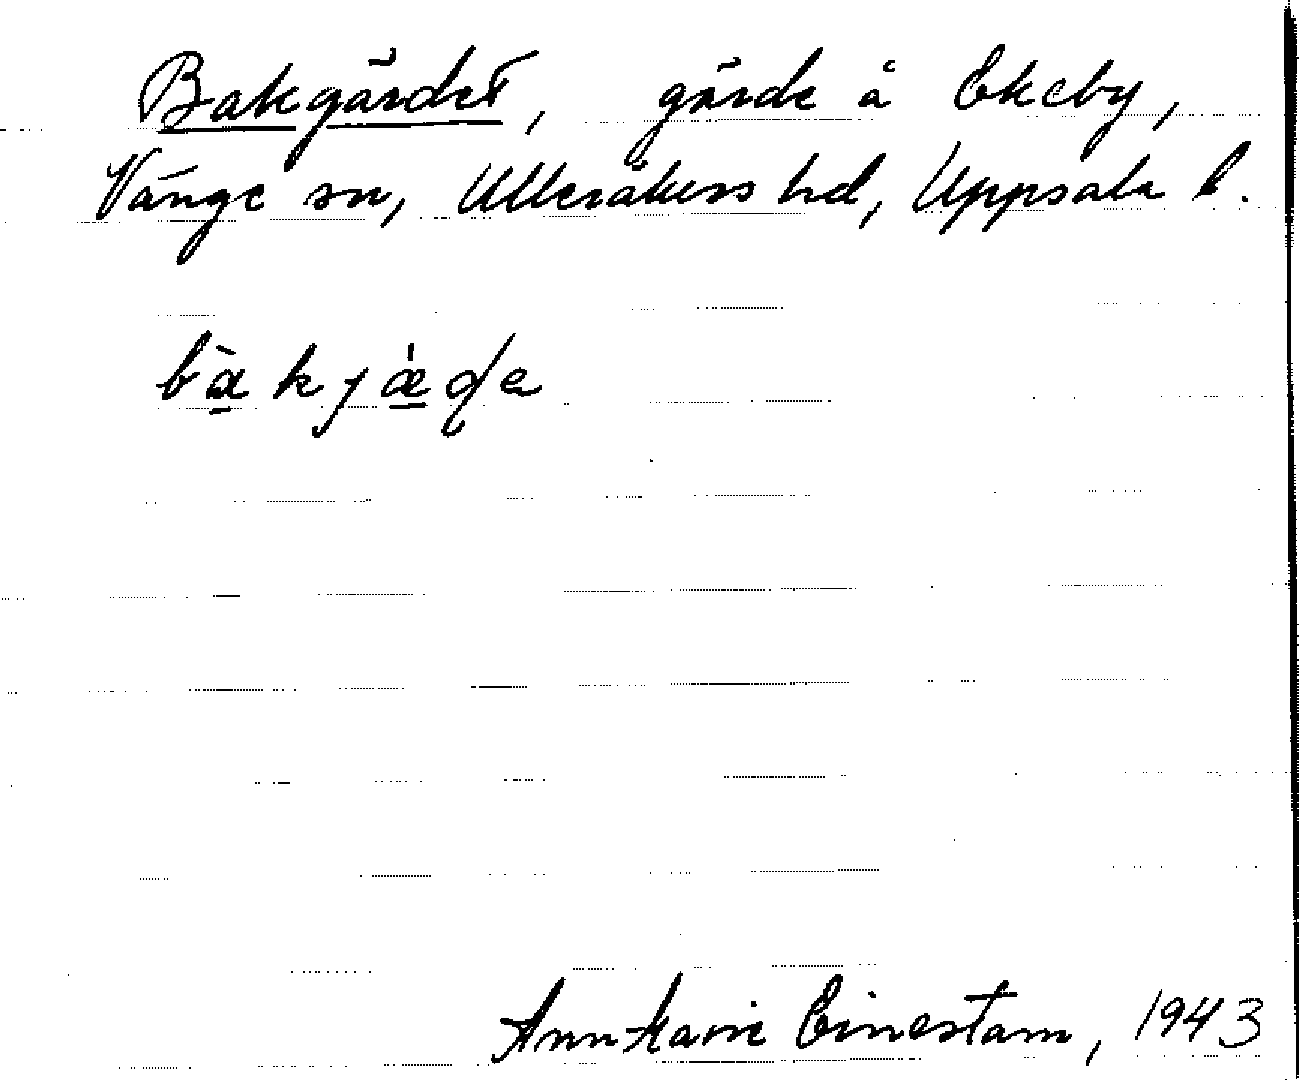 Bakgärdet, gärde å Ekeby,
Vänge sn, Ulleråkers hd, Uppsala l.
bàkjæ̀ɖe
Ann-Marie Einestam, 1943